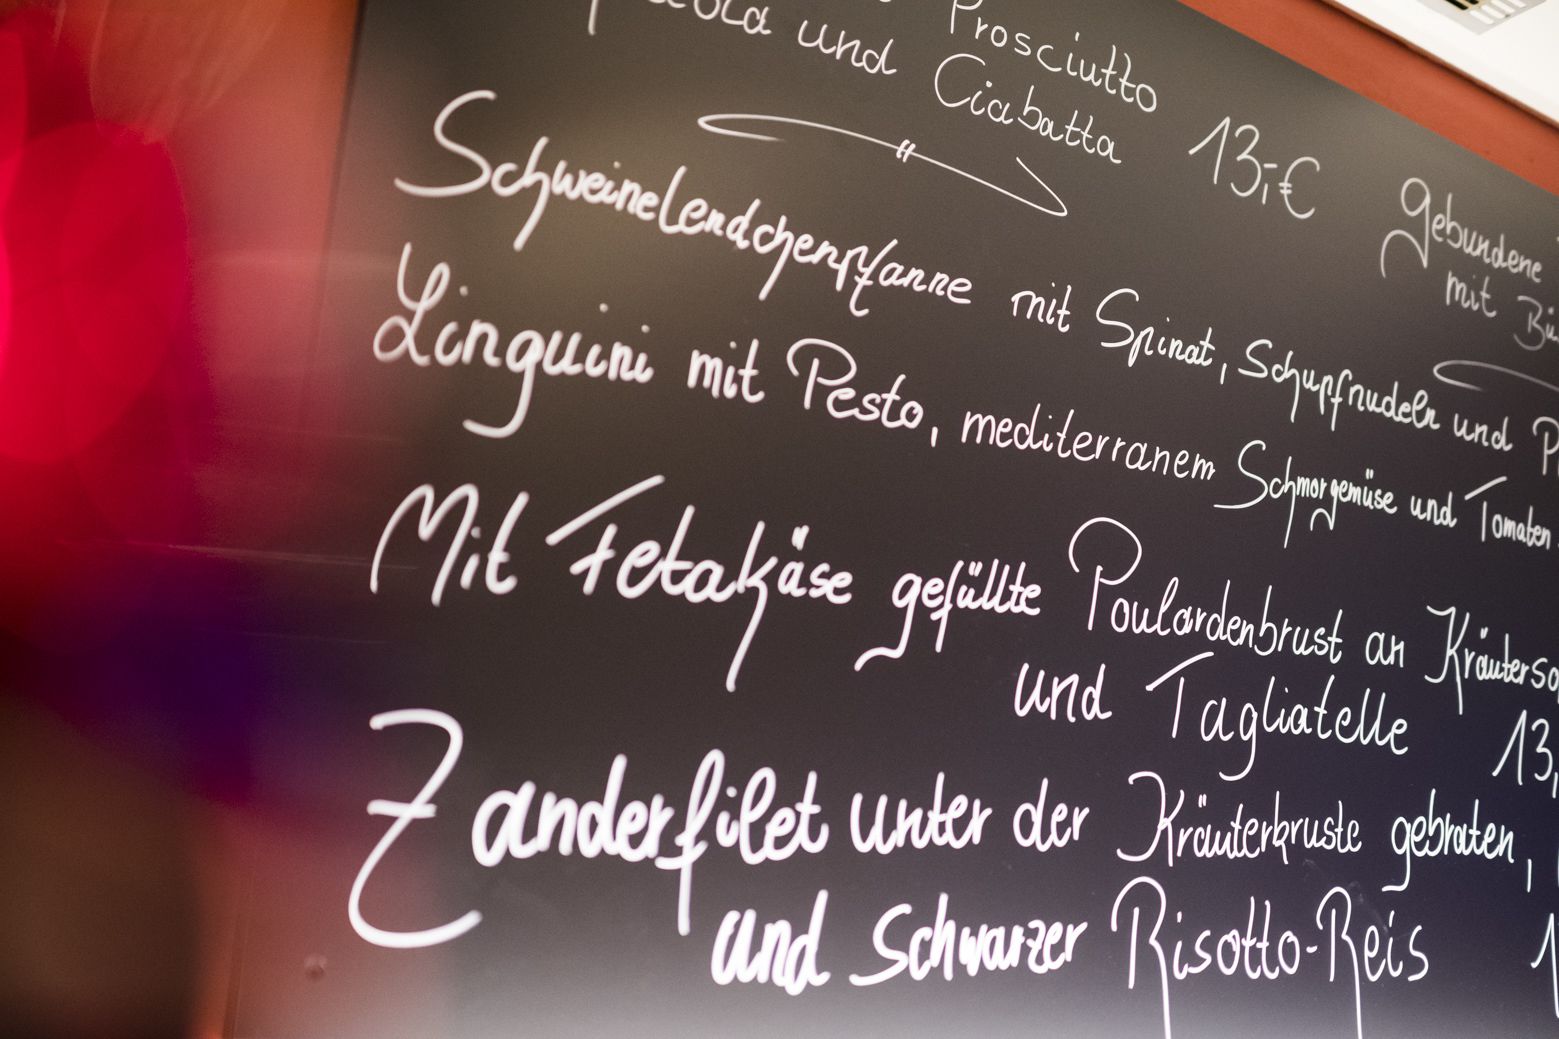 Prosciutto
und Ciabatta 13,-€
Schweinelendchenpfanne mit Spinat, Schupfnudeln und
Linguini mit Pesto, mediterranem Schmorgemüse und Tomaten
Mit Fetakäse gefüllte Poulardenbrust an
und Tagliatelle 13,
Zanderfilet unter der Kräuterkruste gebraten,
und schwarzer Risotto-Reis
gebundene
mit